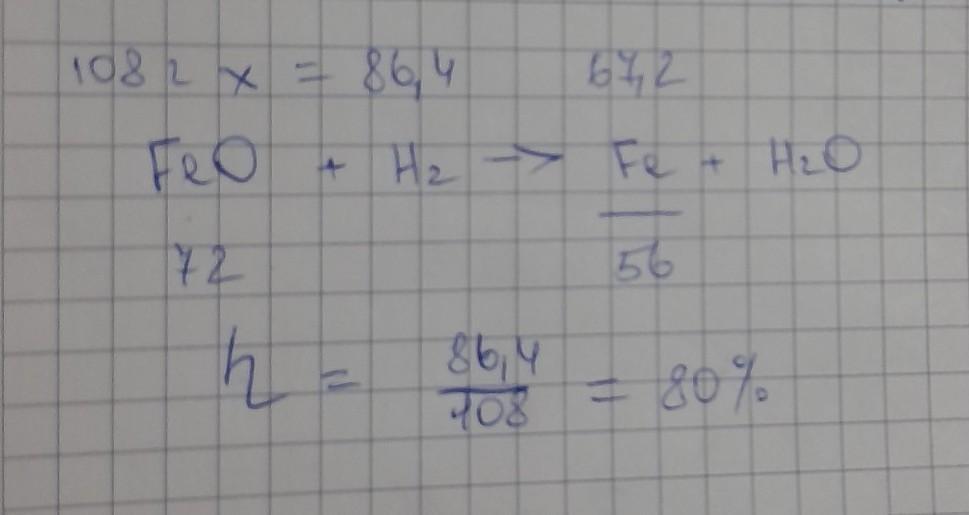 108 г x = 86,4 67,2
FeO + H2 -> Fe + H2O
72 56
η = 86,4/108 = 80%